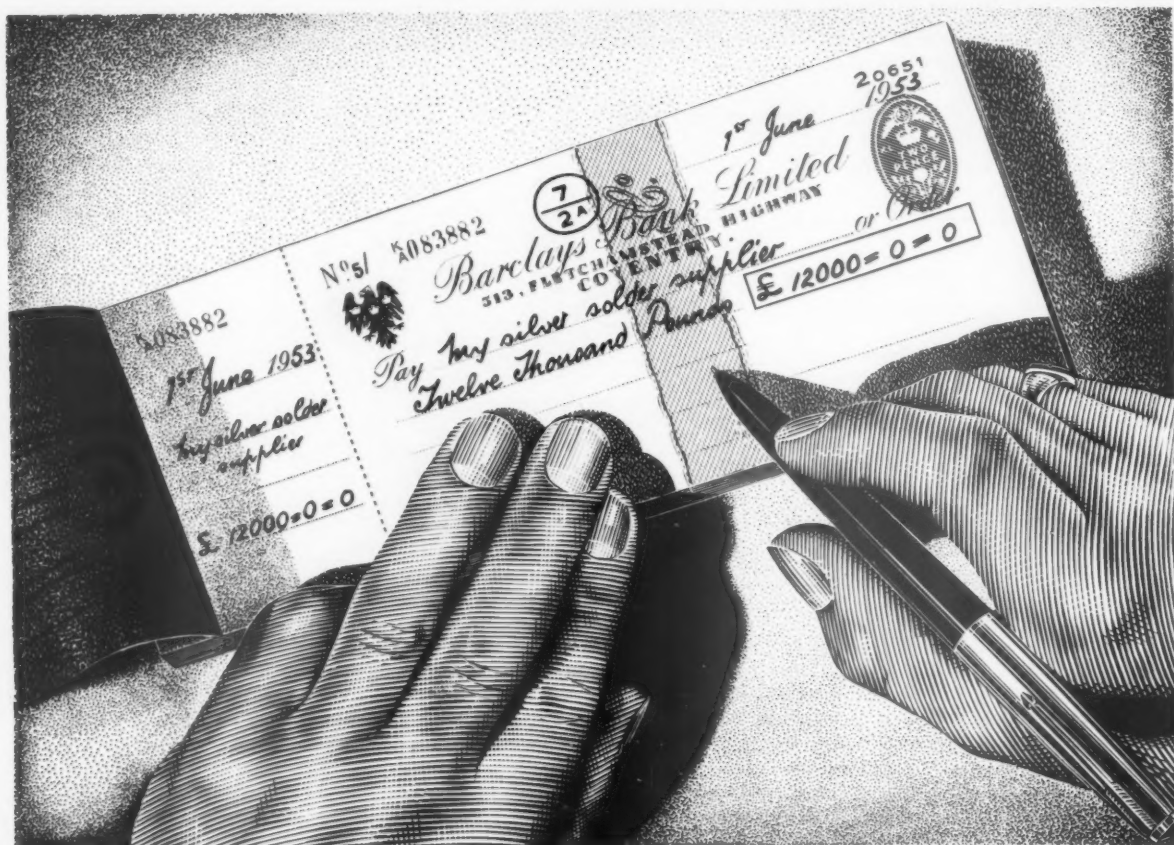 K/A 083882
1ST June 1953
my silver solder
supplier
£ 12000=0=0
Nº 51/ K/A 083882
7/2A
20651
1ST June 1953
Barclays Bank Limited
313, FLETCHAMSTEAD HIGHWAY
COVENTRY
TWO
PENCE
Pay my silver solder supplier or Order
Twelve Thousand Pounds
£ 12000=0=0